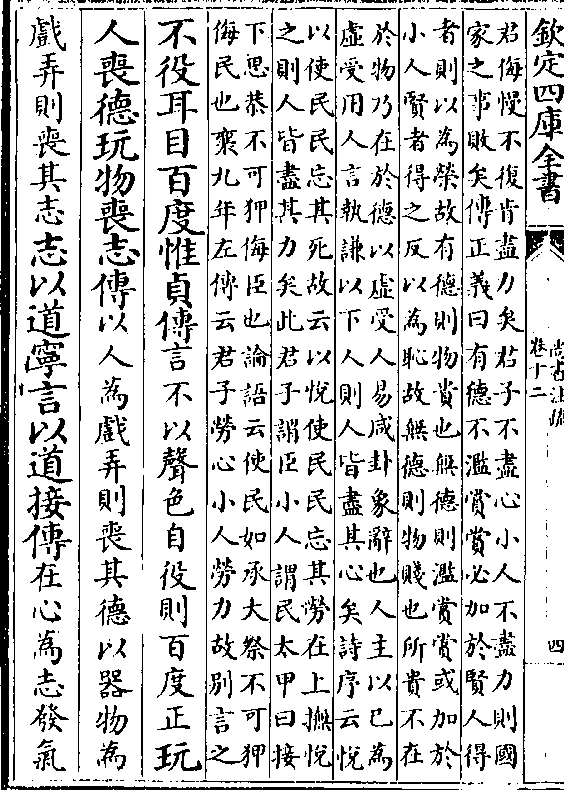 欽定四庫全書
尚書注疏
卷十二
四
君侮慢不復肯盡力矣君子不盡心小人不盡力則國
家之事敗矣傳正義曰有德不濫賞賞必加於賢人得
者則以為榮故有德則物貴也無德則濫賞賞或加於
小人賢者得之反以為恥故無德則物賤也所貴不在
於物乃在於德以虛受人易咸卦象辭也人主以己為
虛受用人言執謙以下人則人皆盡其心矣詩序云悅
以使民民忘其死故云以悅使民民忘其勞在上撫悅
之則人皆盡其力矣此君子謂臣小人謂民太甲曰接
下思恭不可狎侮臣也論語云使民如承大祭不可狎
侮民也襄九年左傳云君子勞心小人勞力故別言之
不役耳目百度惟貞傳言不以聲色自役則百度正玩
人喪德玩物喪志傳以人為戲弄則喪其德以器物為
戲弄則喪其志志以道寧言以道接傳在心為志發氣